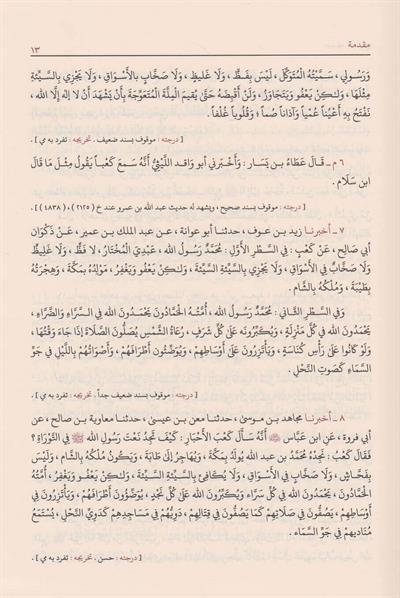 مقدمة ١٣
وَرَسُولي ، سَمَّيْتُهُ المُتَوَكِّلَ ، لَيْسَ بِفَظٍّ ، وَلَا غَلِيظٍ ، وَلَا صَخَّابٍ بِالأَسْوَاقِ ، وَلَا يَجْزِي بِالسَّيِّئَةِ
مِثْلَهَا ، وَلَـٰكِنْ يَعْفُو وَيَتَجَاوَزُ ، وَلَنْ أَقْبِضَهُ حَتَّىٰ يُقِيمَ المِلَّةَ المُتَعَوِّجَةَ بِأَنْ يَشْهَدَ أَنْ لا إلٰهَ إلَّا الله ،
نَفْتَحُ بِهِ أَعْيُناً عُمْياً وَآذَاناً صُماً ، وَقُلُوباً غُلْفاً .
[ درجته : موقوف بسند ضعيف . تخريجه : تفرد به مي ] .
٦ – قال عَطَاءُ بن يَسَار : وَأَخْبَرَني أبو وَاقد اللَّيْثِيُّ أَنَّهُ سمعَ كَعْباً يَقُولُ مِثْلَ مَا قالَ
ابن سَلَام .
[ درجته : موقوف بسند صحيح ، ويشهد له حديث عبد الله بن عمرو عند خ (٢١٢٥) ، (٤٨٣٨) ] .
٧ – أخبرنا زيد بن عوف ، حدثنا أبو عوانة ، عن عبد الملك بن عمير ، عَنْ ذَكْوَانَ
أبي صالح ، عَنْ كَعْبٍ : في السَّطْرِ الأوَّلِ : مُحمَّدٌ رَسُولُ الله ، عَبْدِي المُخْتَارُ ، لا فَظٌّ ، وَلَا غَلِيظٌ
وَلَا صَخَّابٌ في الأَسْوَاقِ ، وَلَا يَجْزِي بِالسَّيِّئَةِ السَّيِّئَةَ ، وَلَـٰكِنْ يَعْفُو وَيَغْفِرُ ، مَوْلِدُهُ بِمَكَّةَ ، وَهِجْرَتُهُ
بِطَيْبَةَ ، وَمُلْكُهُ بِالشَّام .
وَفي السَّطْرِ الثَّاني : مُحَمَّدٌ رَسُولُ الله ، أُمَّتُهُ الحَمَّادُونَ ، يَحْمَدُونَ الله في السَّرَّاءِ وَالضَّرَّاءِ ،
يَحْمَدُونَ الله في كُلِّ مَنْزِلَةٍ ، وَيُكَبِّرُونَهُ عَلَىٰ كُلِّ شَرَفٍ ، رُعَاةُ الشَّمْسِ يُصَلُّونَ الصَّلَاةَ إِذَا جَاءَ وَقْتُهَا ،
وَلَوْ كَانُوا عَلَىٰ رَأْسِ كُنَاسَةٍ ، وَيَأْتَزِرُونَ عَلَىٰ أَوْسَاطِهِمْ ، وَيُوَضِّئُونَ أَطْرَافَهُمْ ، وَأَصْوَاتُهُمْ بِاللَّيْلِ في جَوِّ
السَّمَاءِ كَصَوْتِ النَّحْلِ .
[ درجته : موقوف بسند ضعيف جداً . تخريجه : تفرد به مي ] .
٨ – أخبرنا مجاهد بن موسىٰ ، حدثنا معن بن عيسىٰ ، حدثنا معاوية بن صالح ، عن
أبي فروة ، عَن ابن عَبَّاسٍ أَنَّهُ سَأَلَ كَعْبَ الأَحْبَارِ : كَيْفَ تَجِدُ نَعْتَ رَسُولِ الله ﷺ في التَّوْرَاةِ ؟
فقالَ كَعْبٌ : نَجِدُهُ مُحَمَّدَ بن عبد الله يُولَدُ بِمَكَّةَ ، وَيُهَاجِرُ إلَىٰ طَابَةَ ، وَيَكُونُ مُلْكُهُ بِالشَّام ، وَلَيْسَ
بِفَحَّاشٍ ، وَلَا صَخَّابٍ في الأَسْوَاقِ ، وَلَا يُكَافِئُ بِالسَّيِّئَةِ السَّيِّئَةَ ، وَلَـٰكِنْ يَعْفُو وَيَغْفِرُ ، أُمَّتُهُ
الحَمَّادُونَ ، يَحْمَدُونَ الله في كُلِّ سَرَّاء وَيُكَبِّرُونَ الله عَلَىٰ كُلِّ نَجْدٍ ، يُوَضِّئُونَ أَطْرَافَهُمْ ، وَيَأْتَزِرُونَ في
أَوْسَاطِهِمْ ، يَصُفُّونَ في صَلَاتِهِمْ كَمَا يَصُفُّونَ في قِتَالِهِمْ ، دَوِيُّهُمْ في مَسَاجِدِهِمْ كَدَوِيِّ النَّحْلِ ، يُسْتَمَعُ
مُنَادِيهِم في جَوِّ السَّمَاءِ .
[ درجته : حسن . تخريجه : تفرد به مي ] .